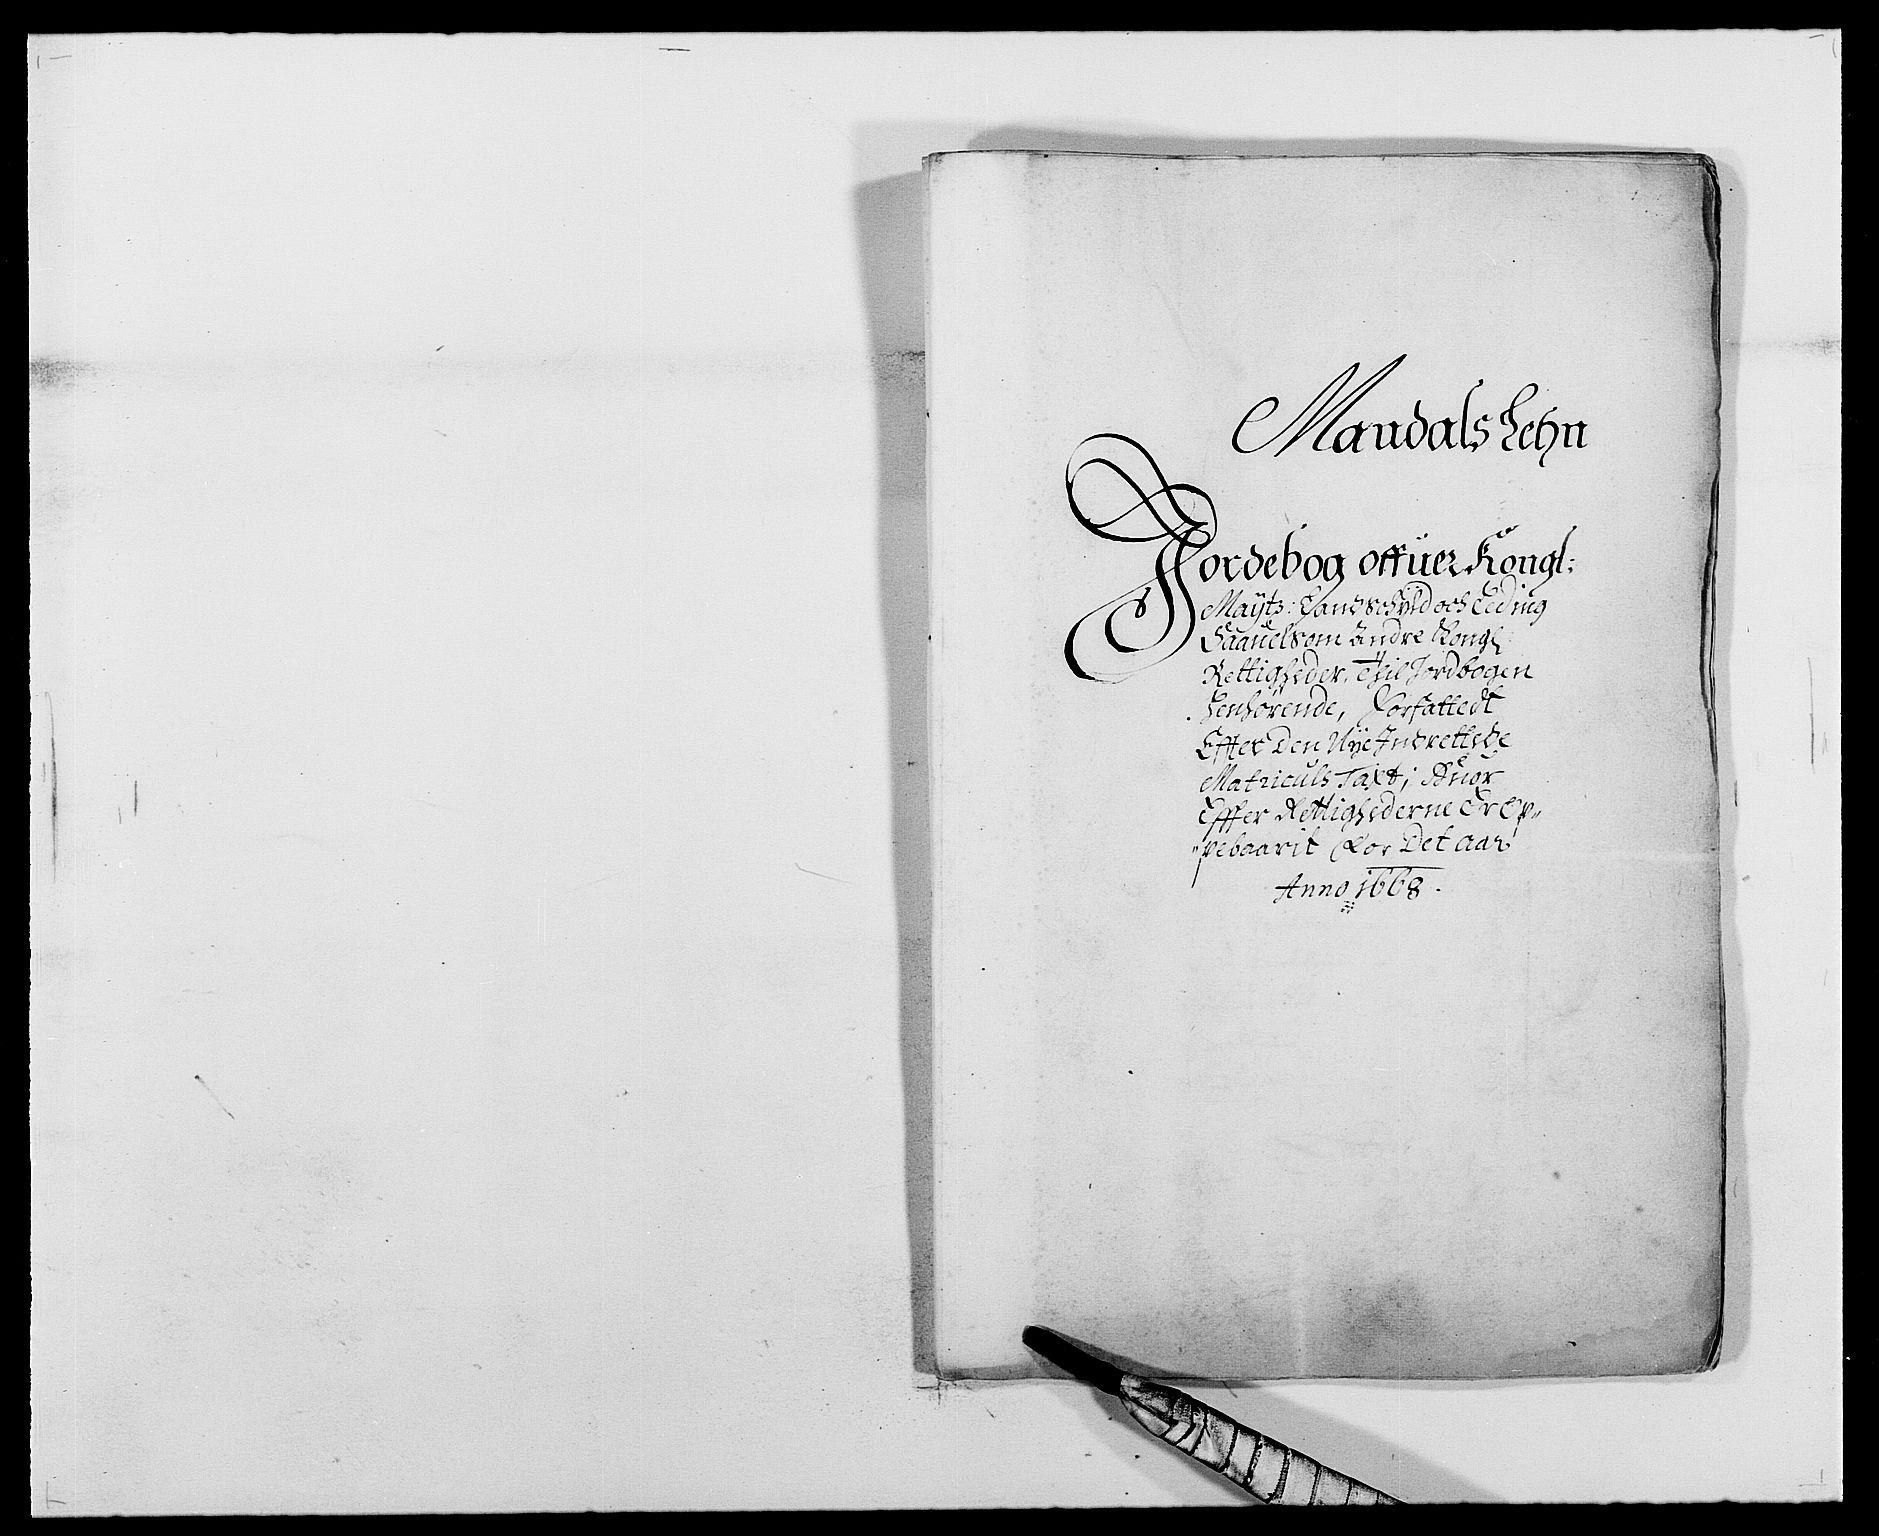 Mandals Lehn
Jordebog offuer Kongl:
Maytz: Landschyld och Leding
Saauelsom Andre Kongl:
Rettigheder, Thil Jordbogen
henhørende, Forfattedt
Effter Den Nÿe Indrettede
Matriculs Taxt; Huor
Effter Rettighederne Er Op„
„pebaarit For Det aar
Anno 1668.